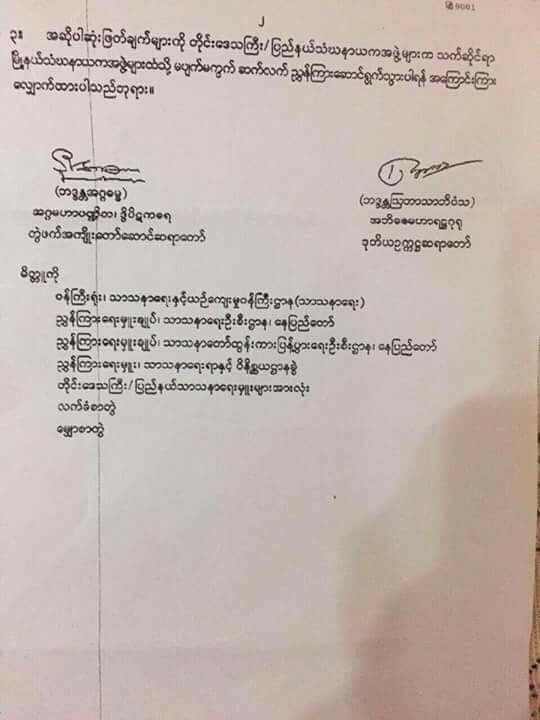 ၂
၃။ အဆိုပါဆုံးဖြတ်ချက်များကို တိုင်းဒေသကြီး/ပြည်နယ်သံဃနာယကအဖွဲ့များက သက်ဆိုင်ရာ
မြို့နယ်သံဃနာယကအဖွဲ့များထံသို့ မပျက်မကွက် ဆက်လက် ညွှန်ကြားဆောင်ရွက်သွားပါရန် အကြောင်းကြား
လျှောက်ထားပါသည်ဘုရား။
(ဘဒ္ဒန္တအဂ္ဂဓမ္မ)
အဂ္ဂမဟာပဏ္ဍိတ၊ ဒွိပိဋကဓရ
တွဲဖက်အကျိုးတော်ဆောင်ဆရာတော်
(ဘဒ္ဒန္တဩဘာသာဘိဝံသ)
အဘိဓဇမဟာရဋ္ဌဂုရု
ဒုတိယဥက္ကဋ္ဌဆရာတော်
မိတ္တူကို
ဝန်ကြီးရုံး၊ သာသနာရေးနှင့်ယဉ်ကျေးမှုဝန်ကြီးဌာန(သာသနာရေး)
ညွှန်ကြားရေးမှူးချုပ်၊ သာသနာရေးဦးစီးဌာန၊ နေပြည်တော်
ညွှန်ကြားရေးမှူးချုပ်၊ သာသနာတော်ထွန်းကားပြန့်ပွားရေးဦးစီးဌာန၊ နေပြည်တော်
ညွှန်ကြားရေးမှူး၊ သာသနာရေးရာနှင့် ဝိနိစ္ဆယဌာနခွဲ
တိုင်းဒေသကြီး/ပြည်နယ်သာသနာရေးမှူးများအားလုံး
လက်ခံစာတွဲ
မျှောစာတွဲ